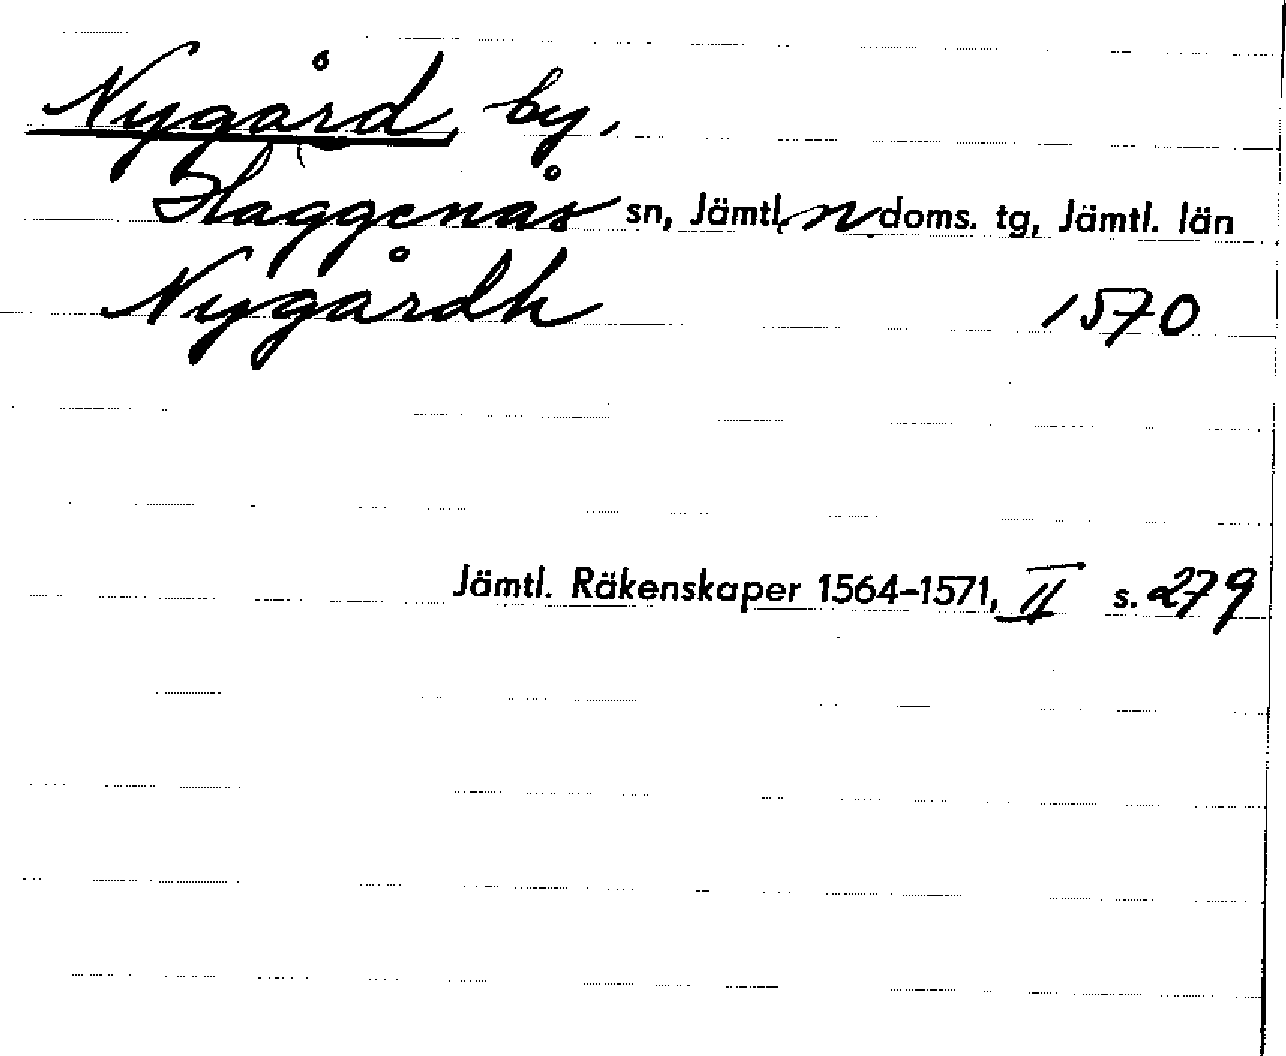 Nygård, by,
Häggenås sn, Jämtl. n doms. tg, Jämtl. län
Nygårdh 1570
Jämtl. Räkenskaper 1564-1571, II s. 279